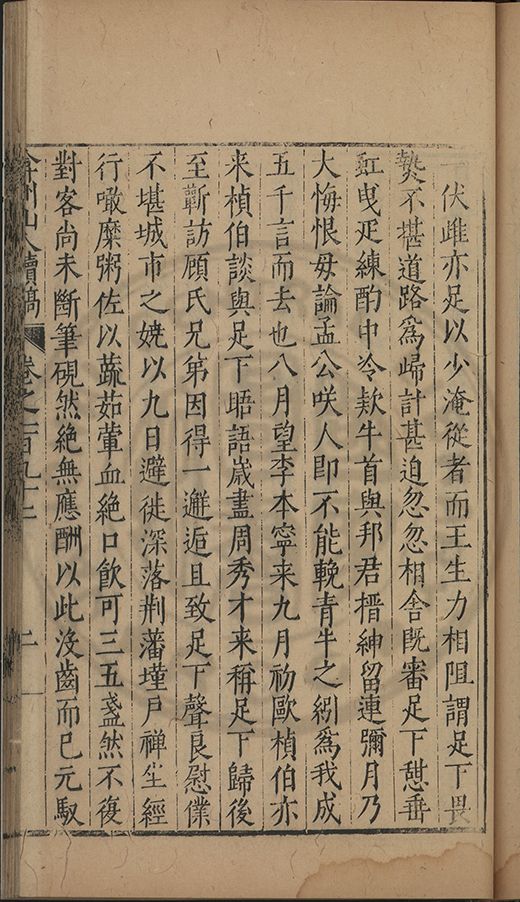 一伏雌亦足以少淹從者而王生力相阻謂足下畏
熱不堪道路為歸計甚迫忽忽相舍旣審足下憇垂
虹曳疋練酌中泠欵牛首與邦君搢紳留連彌月乃
大悔恨毋論孟公咲人即不能輓青牛之紖為我成
五千言而去也八月望李本寧来九月初歐楨伯亦
来楨伯談與足下晤語嵗盡周秀才来稱足下歸後
至蘄訪顧氏兄弟因得一邂逅且致足下聲良慰僕
不堪城市之嬈以九日避徙深落荆藩墐戸禅坐經
行噉糜粥佐以蔬茹葷血絶口飲可三五盞然不復
對客尚未斷筆硯然絶無應酬以此沒齒而已元馭
弇州山人續稿 卷之一百九十二 二